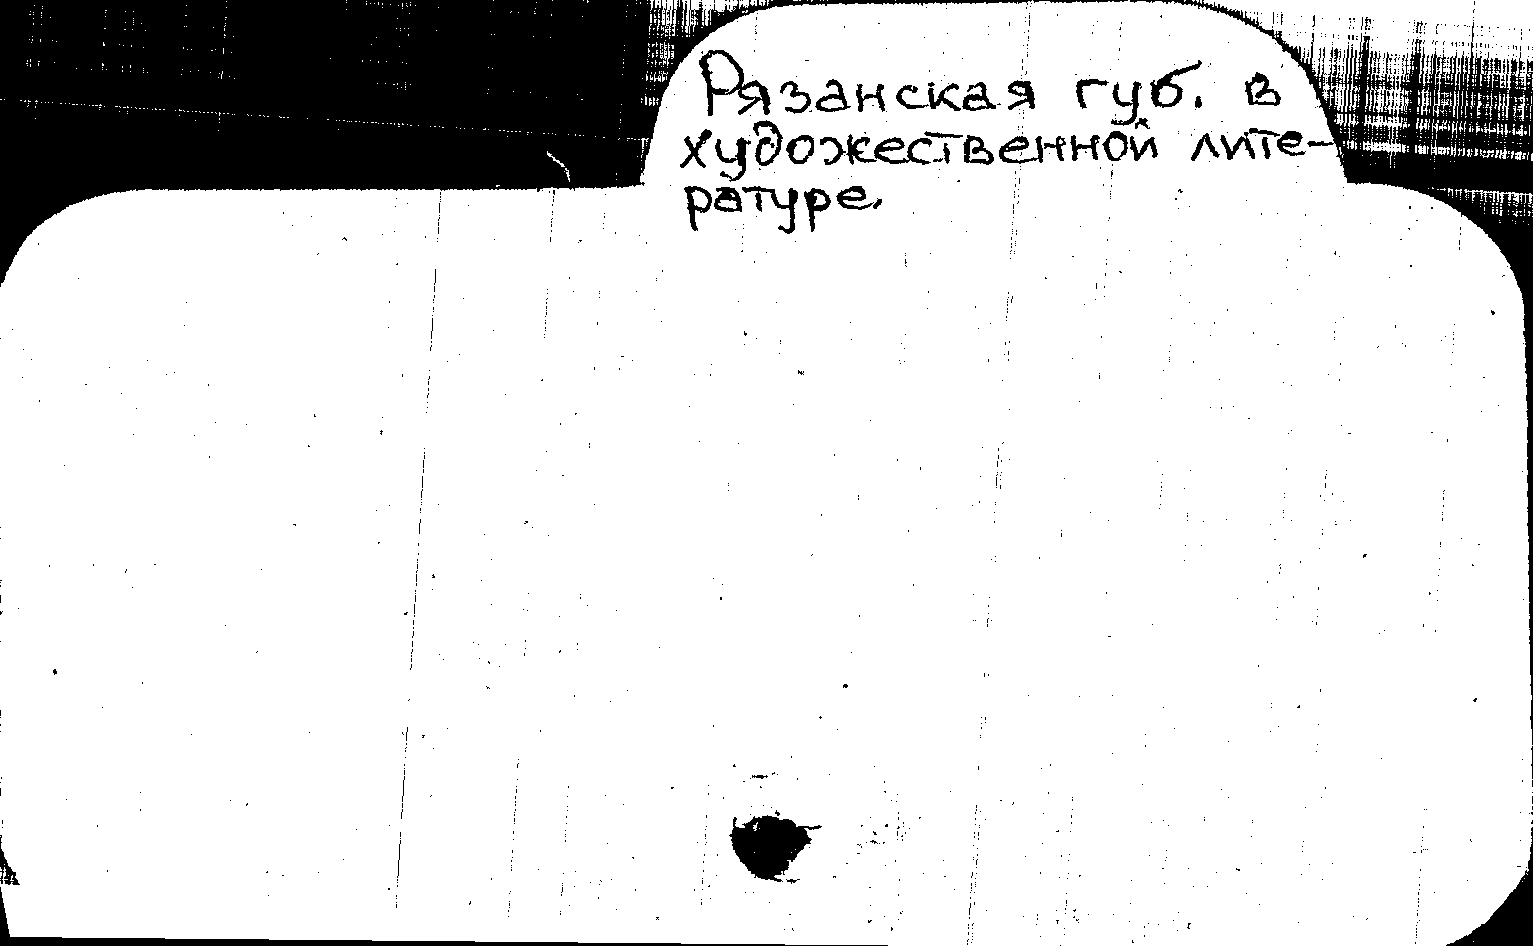 Рязанская губ. в
художественной лите-
ратуре.